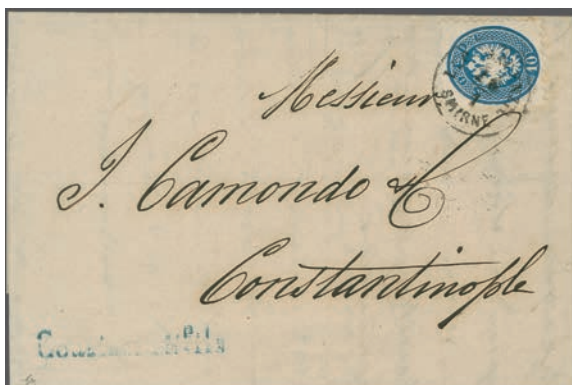 10
SMIRNE
Messieur
J. Camondo & C
Constantinople